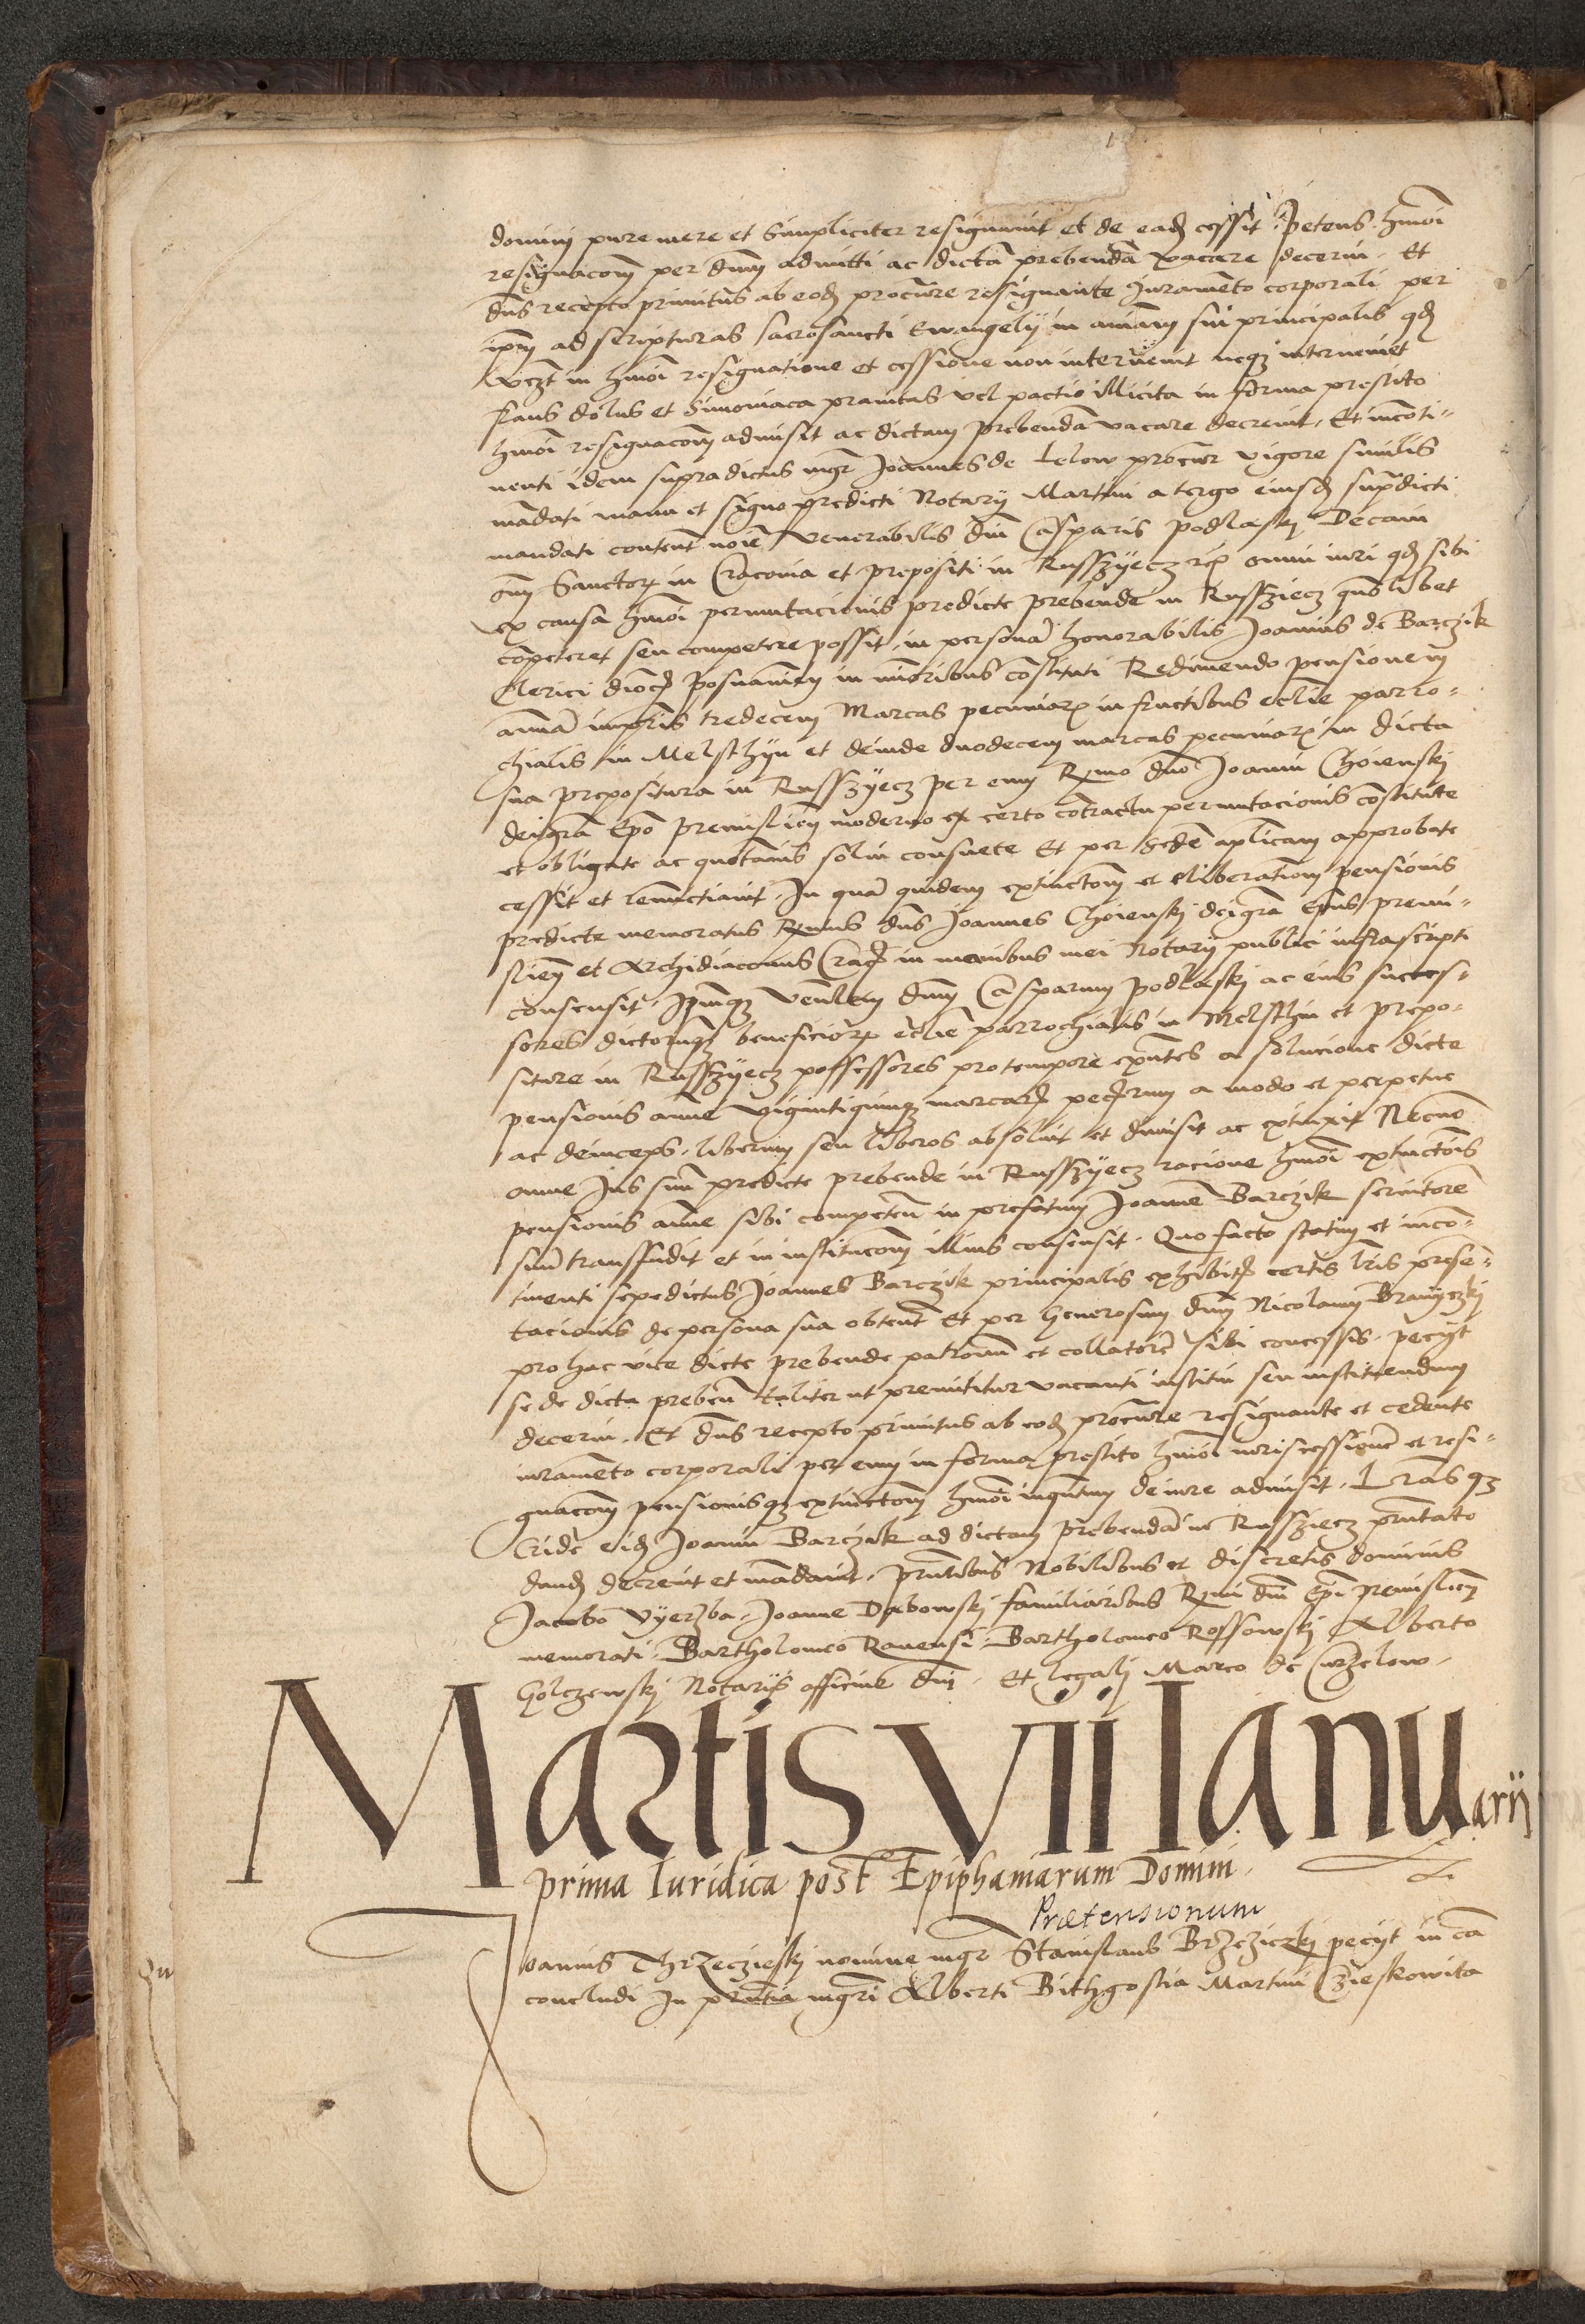 domini pure mere et simpliciter resignavit et de ead cessit petens hmoi
resignacom per dnm admitti ac dictã prebendã vacare decerni. Et
dns recepto primitus ab eod procure resignante Juramẽto corporali per
ipm ad scripturas sacrosancti Ewangelij in animam sui principalis qd
in hmoi resignatione et cessione non intervenit neqz interveniet
fraus dolus et Simoniaca pravitas vel pactio illicita in forma prestito
hmoi resignacom admisit ac dictam prebendã vacare decrevit. Et incõti-
nenti idem supradictus mgr Joannes de Lelow procur vigore similis
mãdati manu et signo predicti Notarij Martini a tergo eiusd supradicti
mandati content noiẽ venerabilis dni Casparis Podlaskj Decani
oim Sanctor in Cracovia et prepositi in Russzyecz omni iuri qd sibi
ex causa hmoi permutacionis predicte prebende in Russziecz quolibet
cõpeteret seu competere possit, in personã honorabilis Joannis de Barczik
Clerici dioc Posnanien in minoribus cõstituti Redimendo pensionem
annuã tredecem Marcas pecuniar in fructibus ecclie parro-
chialis in Melschyn et deinde duodecem marcas pecuniar in dicta
sua prepositura in Russzyecz per eum Rmo dno Joanni Choienskj
dei grã Epo Premislien moderno ex certo cõtractu permutacionis cõstitute
et obligate ac quotannis solvi consuete Et per sedẽ aplicam approbate
cessit et renuntiavit. In quã quidem extinctom et liberationem pensionis
predicte memoratus Rmus dns Joannes Choienskj dei grã Epus premi-
slien et Archidiaconus Crac in manibus mei Notarij publici infrascripti
consensit. Ipsumqz venblem dnm Casparum Podlaskj ac eius succes-
sores dictorumqz beneficior ecclie parrochialis in Melschin et prepo-
siture in Russzyecz possessores pro tempore exntes a solucione dicte
pensionis annue vigintiquinqz marcar pecuniarum a modo et perpetue
ac deinceps. liberum seu liberos absolvit et dimisit ac extinxit Necnõ
omne Jus suũ predicte prebende in Russzyecz racione hmoi extinctõis
pensionis annue sibi competens in prefatum Joannẽ Barczik servitorẽ
suũ transfudit et in institucom illius consensit. Quo facto statim et incõ-
tinenti sepedictus Joannes Barczik principalis exhibitis certis lris presẽ-
tacionis de persona sua obtent Et per Generosum dnm Nicolaum Branyczkj
pro hac vice dicte prebende patronum et collatorẽ sibi concessis. pecijt
se de dicta prebẽn taliter ut premittitur vacanti institui seu instituendum
decerni. Et dns recepto primitus ab eod procure resignante et cedente
iuramẽto corporali per eum in forma prestito hmoi iuris cessionẽ et resi-
gnacom pensionisqz extinctom hmoi inquantum de iure admisit. Lrasqz
Cride eid Joanni Barczik ad dictam prebendã in Russziecz prntato
dand decrevit et mãdavit. prntibus Nobilibus et discretis dominis
Jacobo Vyerzba. Joanne Dabowskj familiaribus Rmi dni Epi Premislien
memorati. Bartholomeo Ravensi. Bartholomeo Rossowskj Alberto
Golczewskj Notarijs officine dni. Et legalj Marco de Curzelow.
Martis VII Ianuarij
prima Iuridica post Epiphaniarum Domini.
Prætensionum
Joannis Thrzeczieskj nomine mgr Stanislaus Brzeziczkj pecijt in cã
concludi In prntia mgri Alberti Bithgostia Martini Czieskowita